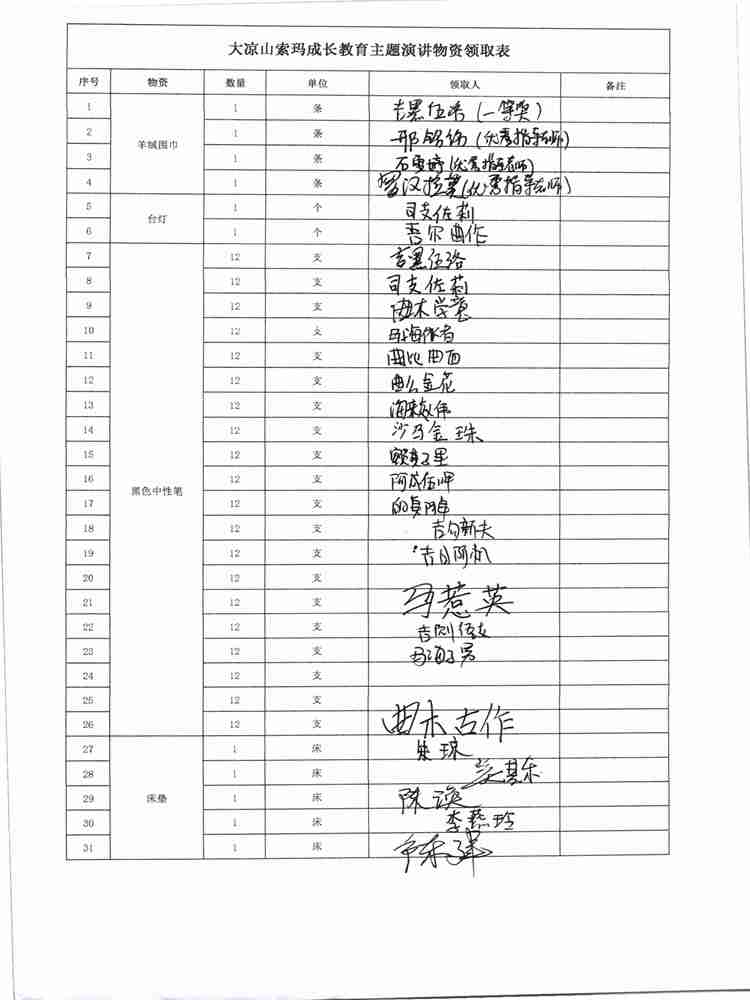 大凉山索玛成长教育主题演讲物资领取表
序号 物资 数量 单位 领取人 备注
1 羊绒围巾 1 条 吉黑伍洛（一等奖）
2 1 条 （优秀指导老师）
3 1 条 石雪婷（优秀指导老师）
4 1 条 罗汉拉莫（优秀指导老师）
5 台灯 1 个 司支佐莉
6 1 个 吾尔曲作
7 黑色中性笔 12 支 吉黑伍洛
8 12 支 司支佐莉
9 12 支 曲木学慧
10 12 支
11 12 支 曲比曲西
12 12 支 曲么金花
13 12 支 海来
14 12 支 沙马金珠
15 12 支
16 12 支 阿成伍呷
17 12 支
18 12 支 吉勾新夫
19 12 支 吉日阿机
20 12 支
21 12 支 马惹英
22 12 支 吉则
23 12 支
24 12 支
25 12 支
26 12 支 曲木古作
27 床垫 1 床 朱琼
28 1 床
29 1 床 陈涣
30 1 床 李燕玲
31 1 床